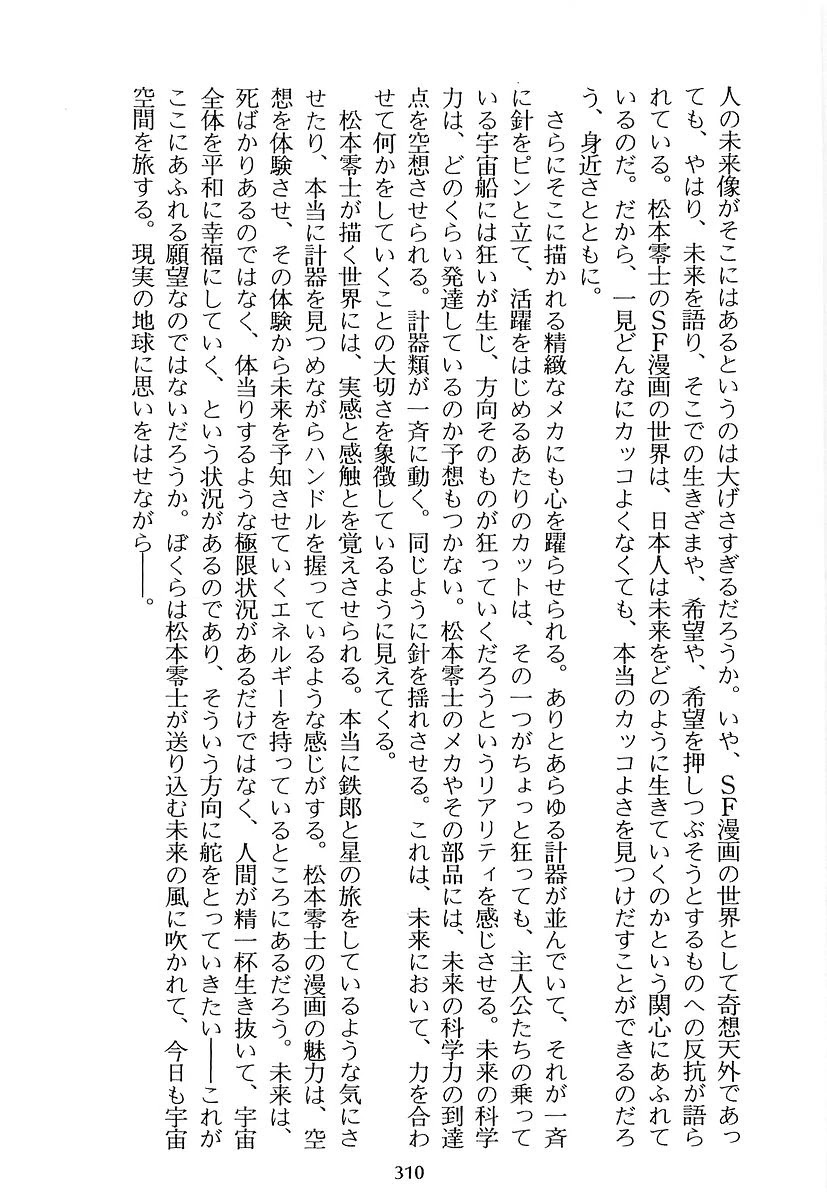 人の未来像がそこにはあるというのは大げさすぎるだろうか。いや、ＳＦ漫画の世界として奇想天外であっ
ても、やはり、未来を語り、そこでの生きざまや、希望や、希望を押しつぶそうとするものへの反抗が語ら
れている。松本零士のＳＦ漫画の世界は、日本人は未来をどのように生きていくのかという関心にあふれて
いるのだ。だから、一見どんなにカッコよくなくても、本当のカッコよさを見つけだすことができるのだろ
う、身近さとともに。
さらにそこに描かれる精緻なメカにも心を躍らせられる。ありとあらゆる計器が並んでいて、それが一斉
に針をピンと立て、活躍をはじめるあたりのカットは、その一つがちょっと狂っても、主人公たちの乗って
いる宇宙船には狂いが生じ、方向そのものが狂っていくだろうというリアリティを感じさせる。未来の科学
力は、どのくらい発達しているのか予想もつかない。松本零士のメカやその部品には、未来の科学力の到達
点を空想させられる。計器類が一斉に動く。同じように針を揺れさせる。これは、未来において、力を合わ
せて何かをしていくことの大切さを象徴しているように見えてくる。
松本零士が描く世界には、実感と感触とを覚えさせられる。本当に鉄郎と星の旅をしているような気にさ
せたり、本当に計器を見つめながらハンドルを握っているような感じがする。松本零士の漫画の魅力は、空
想を体験させ、その体験から未来を予知させていくエネルギーを持っているところにあるだろう。未来は、
死ばかりあるのではなく、体当りするような極限状況があるだけではなく、人間が精一杯生き抜いて、宇宙
全体を平和に幸福にしていく、という状況があるのであり、そういう方向に舵をとっていきたい――これが
ここにあふれる願望なのではないだろうか。ぼくらは松本零士が送り込む未来の風に吹かれて、今日も宇宙
空間を旅する。現実の地球に思いをはせながら――。
310